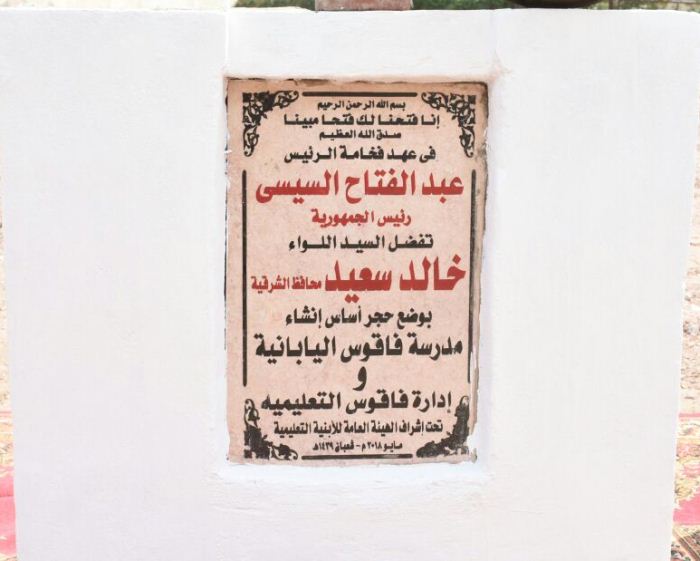 بسم الله الرحمن الرحيم
إنا فتحنا لك فتحا مبينا
صدق الله العظيم
فى عهد فخامة الرئيس
عبد الفتاح السيسى
رئيس الجمهورية
تفضل السيد اللواء
خالد سعيد محافظ الشرقية
بوضع حجر أساس إنشاء
مدرسة فاقوس اليابانية
و
إدارة فاقوس التعليميه
تحت إشراف الهيئة العامة للأبنية التعليمية
مايو ٢٠١٨م - شعبان ١٤٣٩هـ